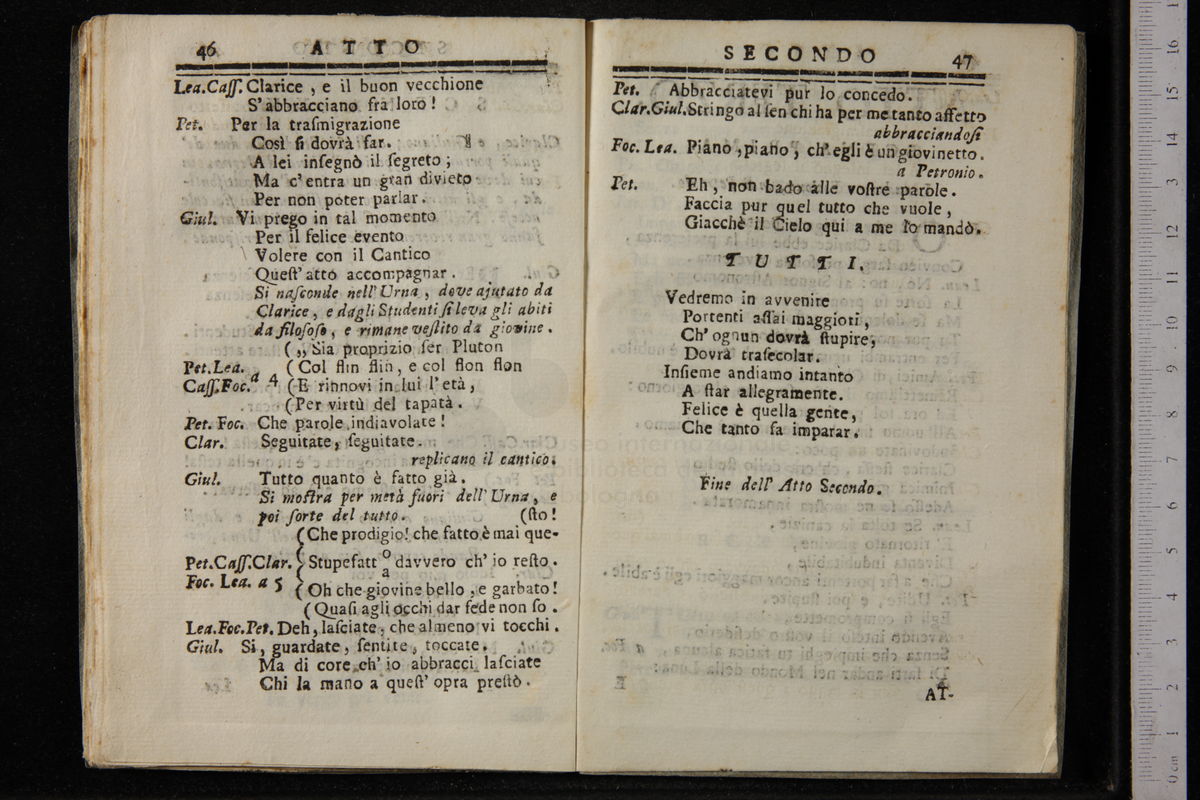 46 ATTO
Lea.Caſſ. Clarice , e il buon vecchione
S'abbracciano fra loro !
Pet. Per la traſmigrazione
Così ſi dovrà far.
A lei inſegnò il ſegreto ;
Ma c'entra un gran divieto
Per non poter parlar.
Giul. Vi prego in tal momento
Per il felice evento
Volere con il Cantico
Queſt' atto accompagnar .
Si naſconde nell'Urna , dove ajutato da
Clarice , e dagli Studenti ſi leva gli abiti
da filoſofo , e rimane veſtito da giovine .
( ,, Sia proprizio ſer Pluton
Pet.Lea. ( Col flin flin, e col flon flon
Caſſ.Foc. a 4 ( E rinnovi in lui l'età,
( Per virtù del tapatà .
Pet. Foc. Che parole indiavolate !
Clar. Seguitate, ſeguitate.
replicano il cantico.
Giul. Tutto quanto è fatto già.
Si moſtra per metà fuori dell' Urna, e
poi ſorte del tutto. (ſto!
( Che prodigio! che fatto è mai que-
Pet.Caſſ.Clar. ( Stupefatt o/a davvero ch' io reſto .
Foc. Lea. a 5 ( Oh che giovine bello , e garbato !
( Quaſi agli occhi dar fede non ſo .
Lea.Foc.Pet. Deh, laſciate, che almeno vi tocchi .
Giul. Si, guardate, ſentite, toccate.
Ma di core ch' io abbracci laſciate
Chi la mano a queſt' opra preſtò .
SECONDO 47
Pet. Abbracciatevi pur lo concedo.
Clar.Giul. Stringo al ſen chi ha per me tanto affetto
abbracciandoſi
Foc. Lea. Piano , piano , ch' egli è un giovinetto .
a Petronio .
Pet. Eh , non bado alle voſtre parole .
Faccia pur quel tutto che vuole ,
Giacchè il Cielo qui a me lo mandò.
TUTTI.
Vedremo in avvenire
Portenti aſſai maggiori ,
Ch' ognun dovrà ſtupire,
Dovrà traſecolar.
Inſieme andiamo intanto
A ſtar allegramente.
Felice è quella gente,
Che tanto fa imparar.
Fine dell' Atto Secondo.
AT-